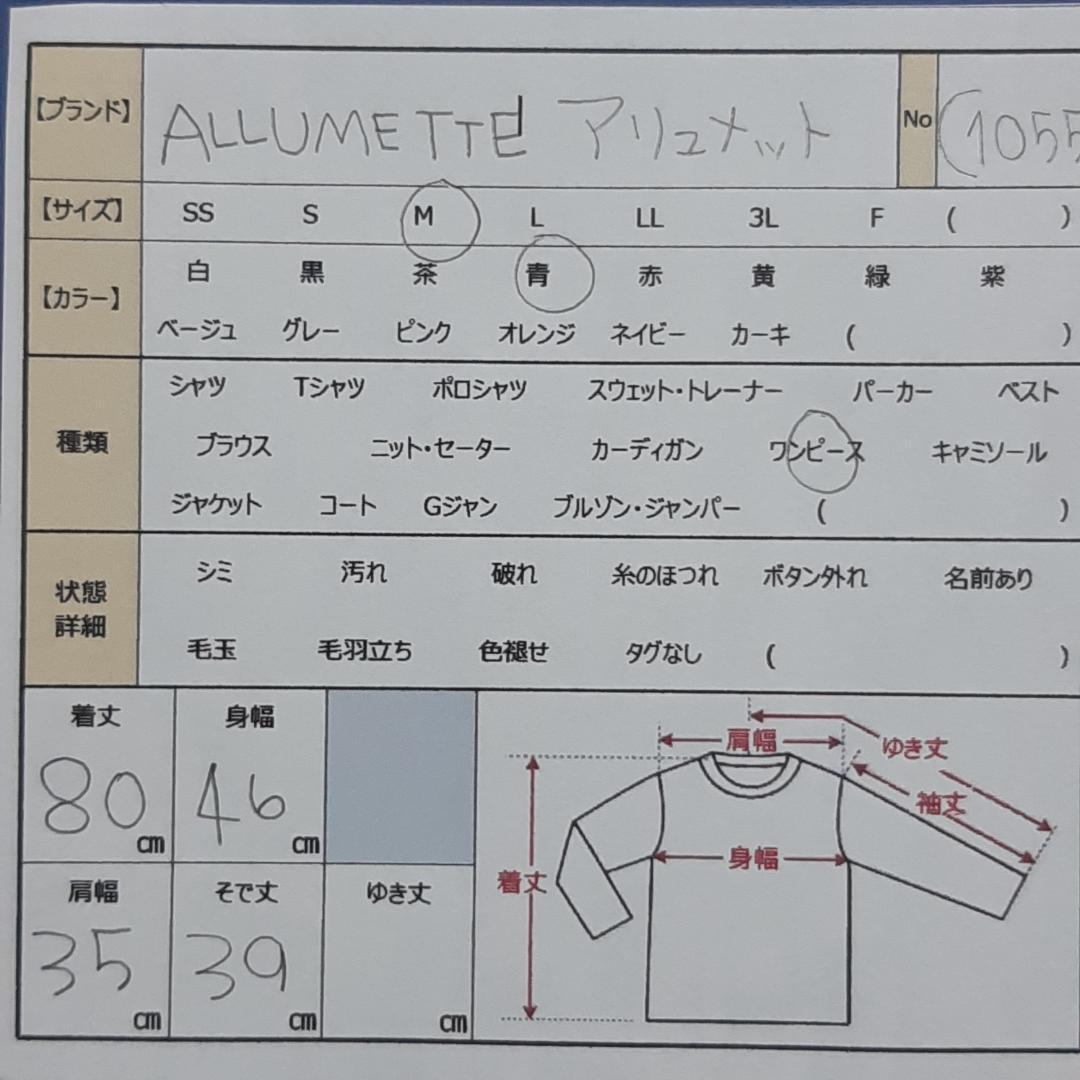 【ブランド】 ALLUMETTE アリュメット No (1055
【サイズ】 SS S M L LL 3L F ( )
【カラー】 白 黒 茶 青 赤 黄 緑 紫
ベージュ グレー ピンク オレンジ ネイビー カーキ ( )
種類 シャツ Tシャツ ポロシャツ スウェット・トレーナー パーカー ベスト
ブラウス ニット・セーター カーディガン ワンピース キャミソール
ジャケット コート Gジャン ブルゾン・ジャンパー ( )
状態詳細 シミ 汚れ 破れ 糸のほつれ ボタン外れ 名前あり
毛玉 毛羽立ち 色褪せ タグなし ( )
着丈 身幅
80cm 46cm
肩幅 そで丈 ゆき丈
35cm 39cm cm
肩幅 ゆき丈
袖丈
身幅
着丈